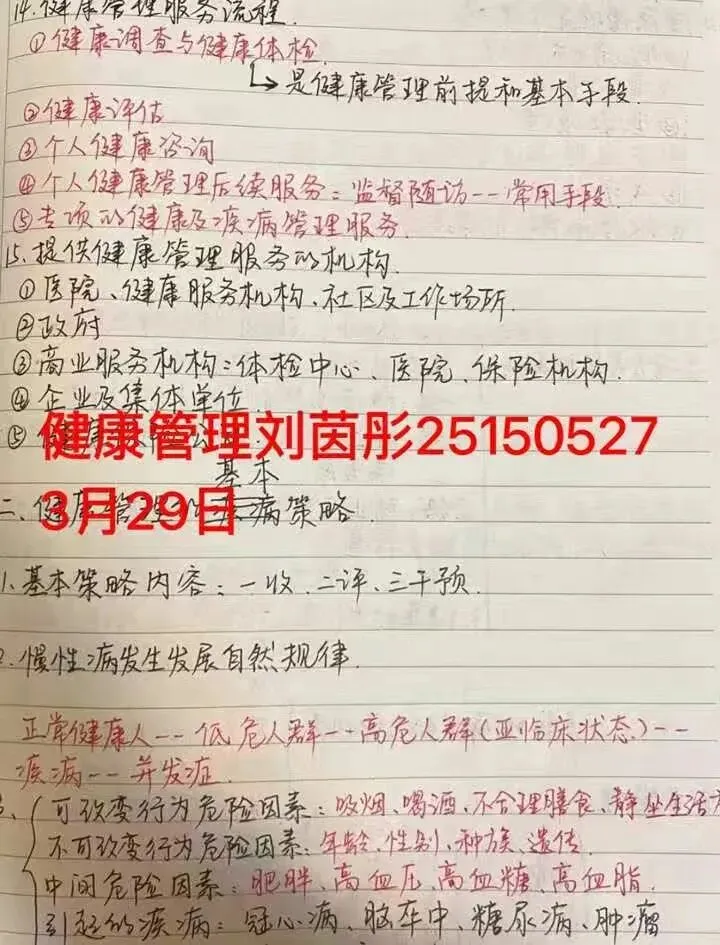 14.健康管理服务流程.
①健康调查与健康体检.
↳是健康管理前提和基本手段.
②健康评估
③个人健康咨询
④个人健康管理后续服务:监督随访--常用手段.
⑤专项的健康及疾病管理服务.
15.提供健康管理服务的机构.
①医院、健康服务机构、社区及工作场所.
②政府
③商业服务机构:体检中心、医院、保险机构.
④企业及集体单位.
⑤健康
健康管理刘茵彤25150527
基本
二、健康管理的 病策略.
3月29日
1.基本策略内容:一收.二评、三干预.
2.慢性病发生发展自然规律.
正常健康人--低危人群--高危人群(亚临床状态)--
疾病--并发症.
可改变行为危险因素:吸烟、喝酒、不合理膳食、静坐生活方
不可改变行为危险因素:年龄、性别、种族、遗传.
中间危险因素:肥胖、高血压、高血糖、高血脂.
引起的疾病:冠心病、脑卒中、糖尿病、肿瘤